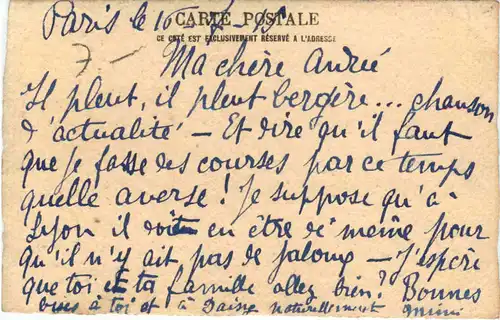 Paris le 10
CARTE POSTALE
CE COTÉ EST EXCLUSIVEMENT RÉSERVÉ A L'ADRESSE
7-
Ma chère Andrée
Il pleut, il pleut bergère... chanson
d'actualité - Et dire qu'il faut
que je fasse des courses par ce temps
quelle averse ! Je suppose qu'à
Lyon il doit en être de même pour
qu'il n'y ait pas de jaloux - J'espère
que toi et ta famille allez bien ? Bonnes
bises à toi et à naturellement